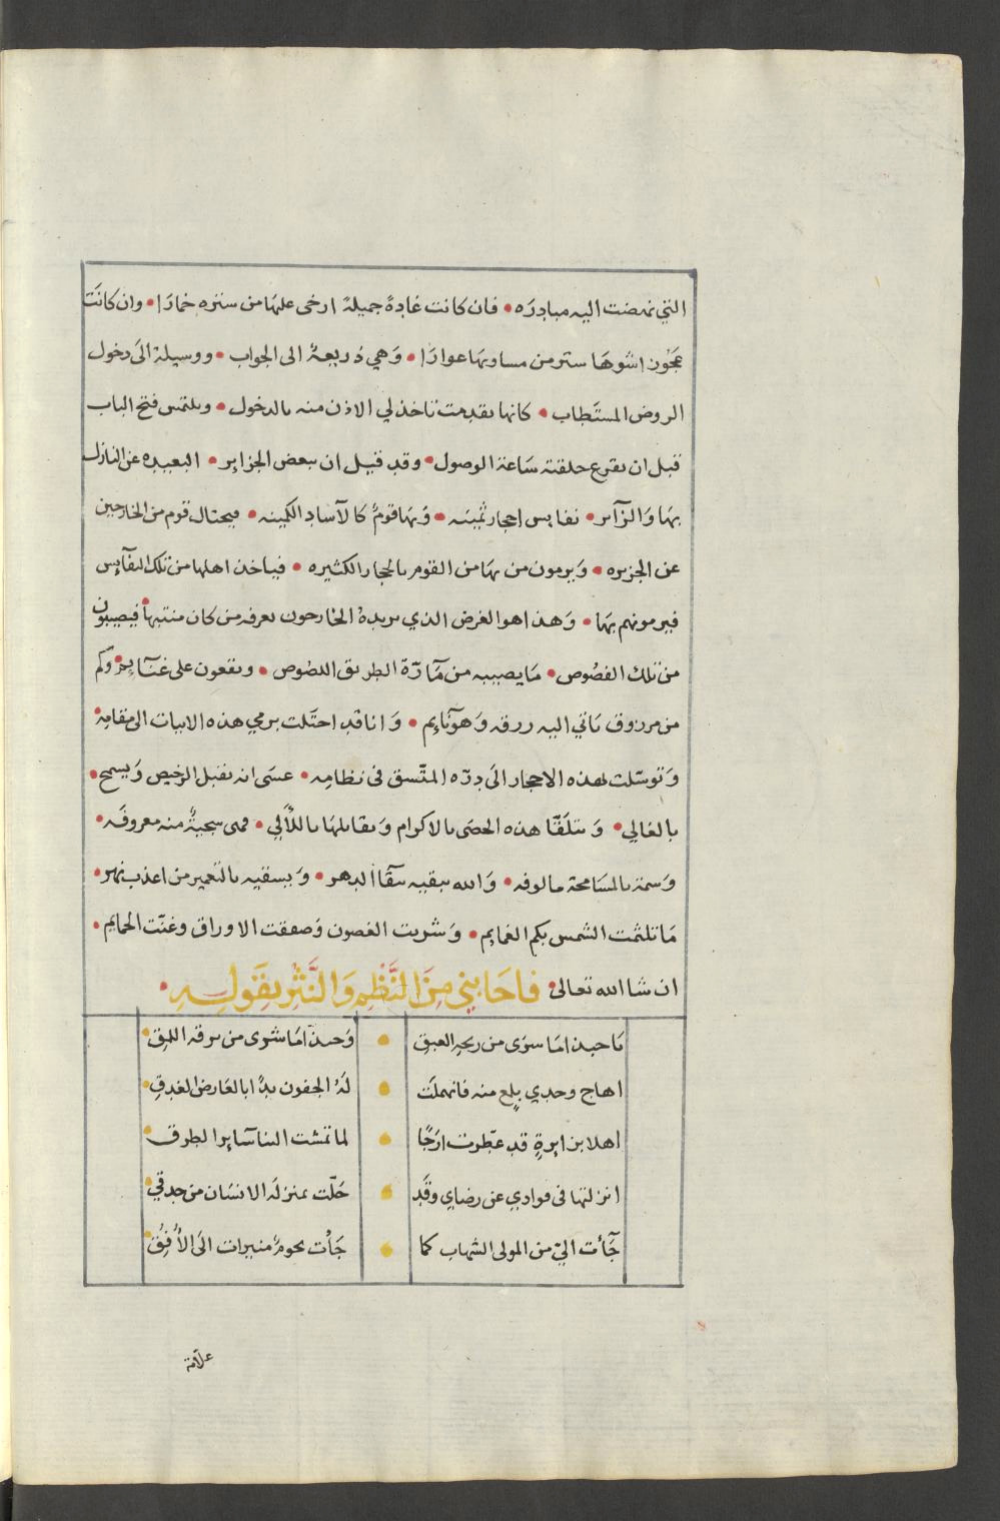 التي نهضت اليه مبادره • فان كانت غادة جميلة ارخى عليها من ستره خمارا • وان كانت
عجوز اشوها ستر من مساويها عوارا • وهي ذريعة الى الجواب • ووسيلة الى دخول
الروض المستطاب • كانها تقدمت تاخذ لي الاذن منه بالدخول • ويلتمس فتح الباب
قبل ان يقرع حلقته ساعة الوصول • وقد قيل ان ببعض الجزاير • البعيده عن النازل
بها والزآير • نفايس احجار ثمينه • وبها قوم كالآساد الكمينه • فيحتال قوم من الخارجين
عن الجزيره • ويرمون من بها من القوم بالحجار الكثيره • فياخذ اهلها من تلك النفآيس
فيرمونهم بها • وهذا هو الغرض الذي يريده الخارجون يعرفه من كان منتبها • فيصيبون
من تلك الفصوص • ما يصيبه من مآرة الطريق اللصوص • ويقعون على غنآيم • وكم
من مرزوق ياتي اليه رزقه وهو نآيم • وانا قد احتلت برمي هذه الابيات الى مقامه •
وتوسلت بهذه الاحجار الى دره المتسق في نظامه • عسى انه يقبل الرخيص ويسمح •
بالغالي • ويتلقا هذه الحصى بالاكرام ويقابلها باللألي • فهي سجية منه معروفه •
وسمة بالمسامحة مالوفه • والله يبقيه بقآ الدهر • ويسقيه بالتعمير من اعذب نهر •
ما تلثمت الشمس بكم الغمايم • وشربت الغصون وصفقت الاوراق وغنت الحمايم •
ان شا الله تعالى • فاجابني من النظم والنثر بقوله •
ما حبذا ما سرى من ريحه العبق • وحبذا ما شرى من برقه اللمق
اهاج وجدي بلمع منه فانهملت • له الجفون بدا بالعارض الغدق
اهلا بزايرة قد عطرت ارجا • لما تمشت الينا سآير الطرق
انزلتها في فوادي عن رضاي وقد • حلت بمنزله الانسان من حدقي
جآت الي من المولى الشهاب كما • جأت نجوم منيرات الى الأفق
علآمة